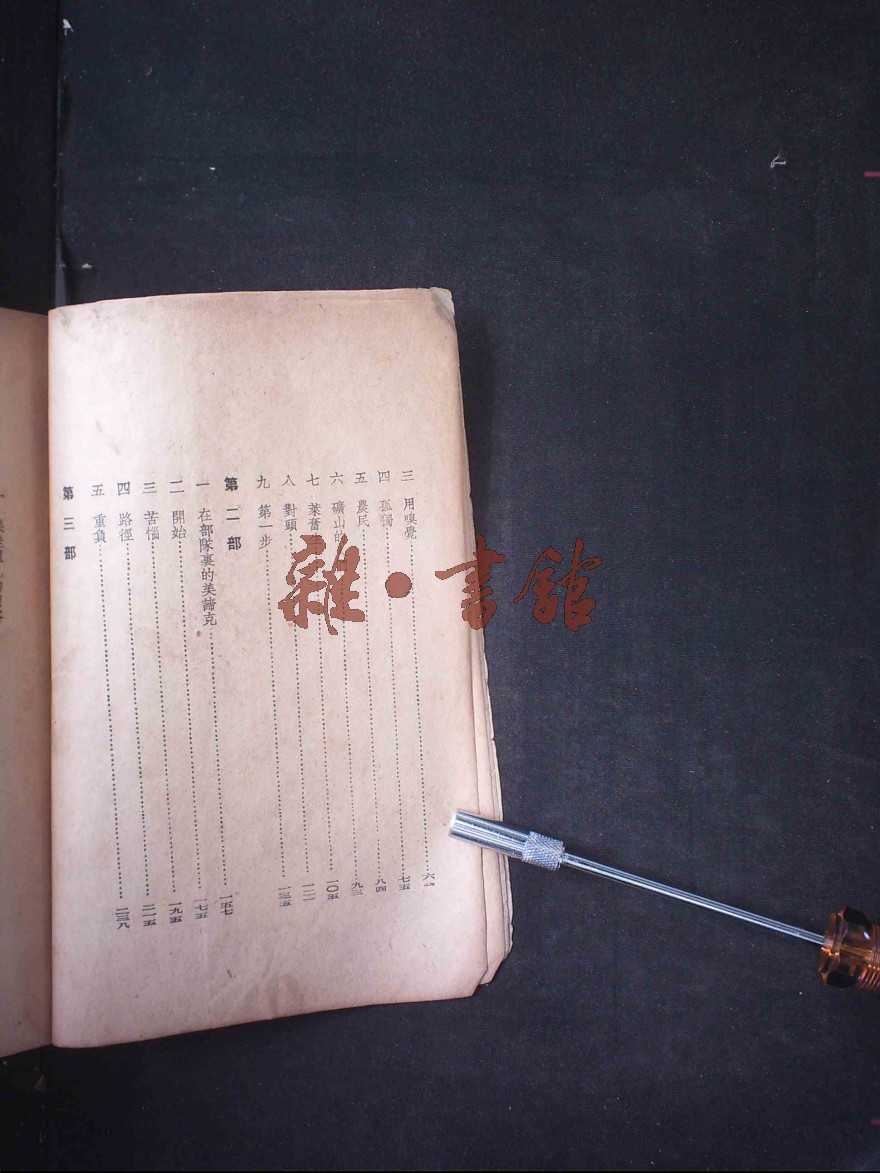 三 用嗅覺……六
四 孤獨……七五
五 農民……八四
六 礦山的……九三
七 萊奮生……一〇五
八 對頭……一二一
九 第一步……一三五
第二部
一 在部隊裏的美諦克……一五七
二 開始……一七五
三 苦惱……一九五
四 路徑……二一五
五 重負……二三八
第三部
雜·書館